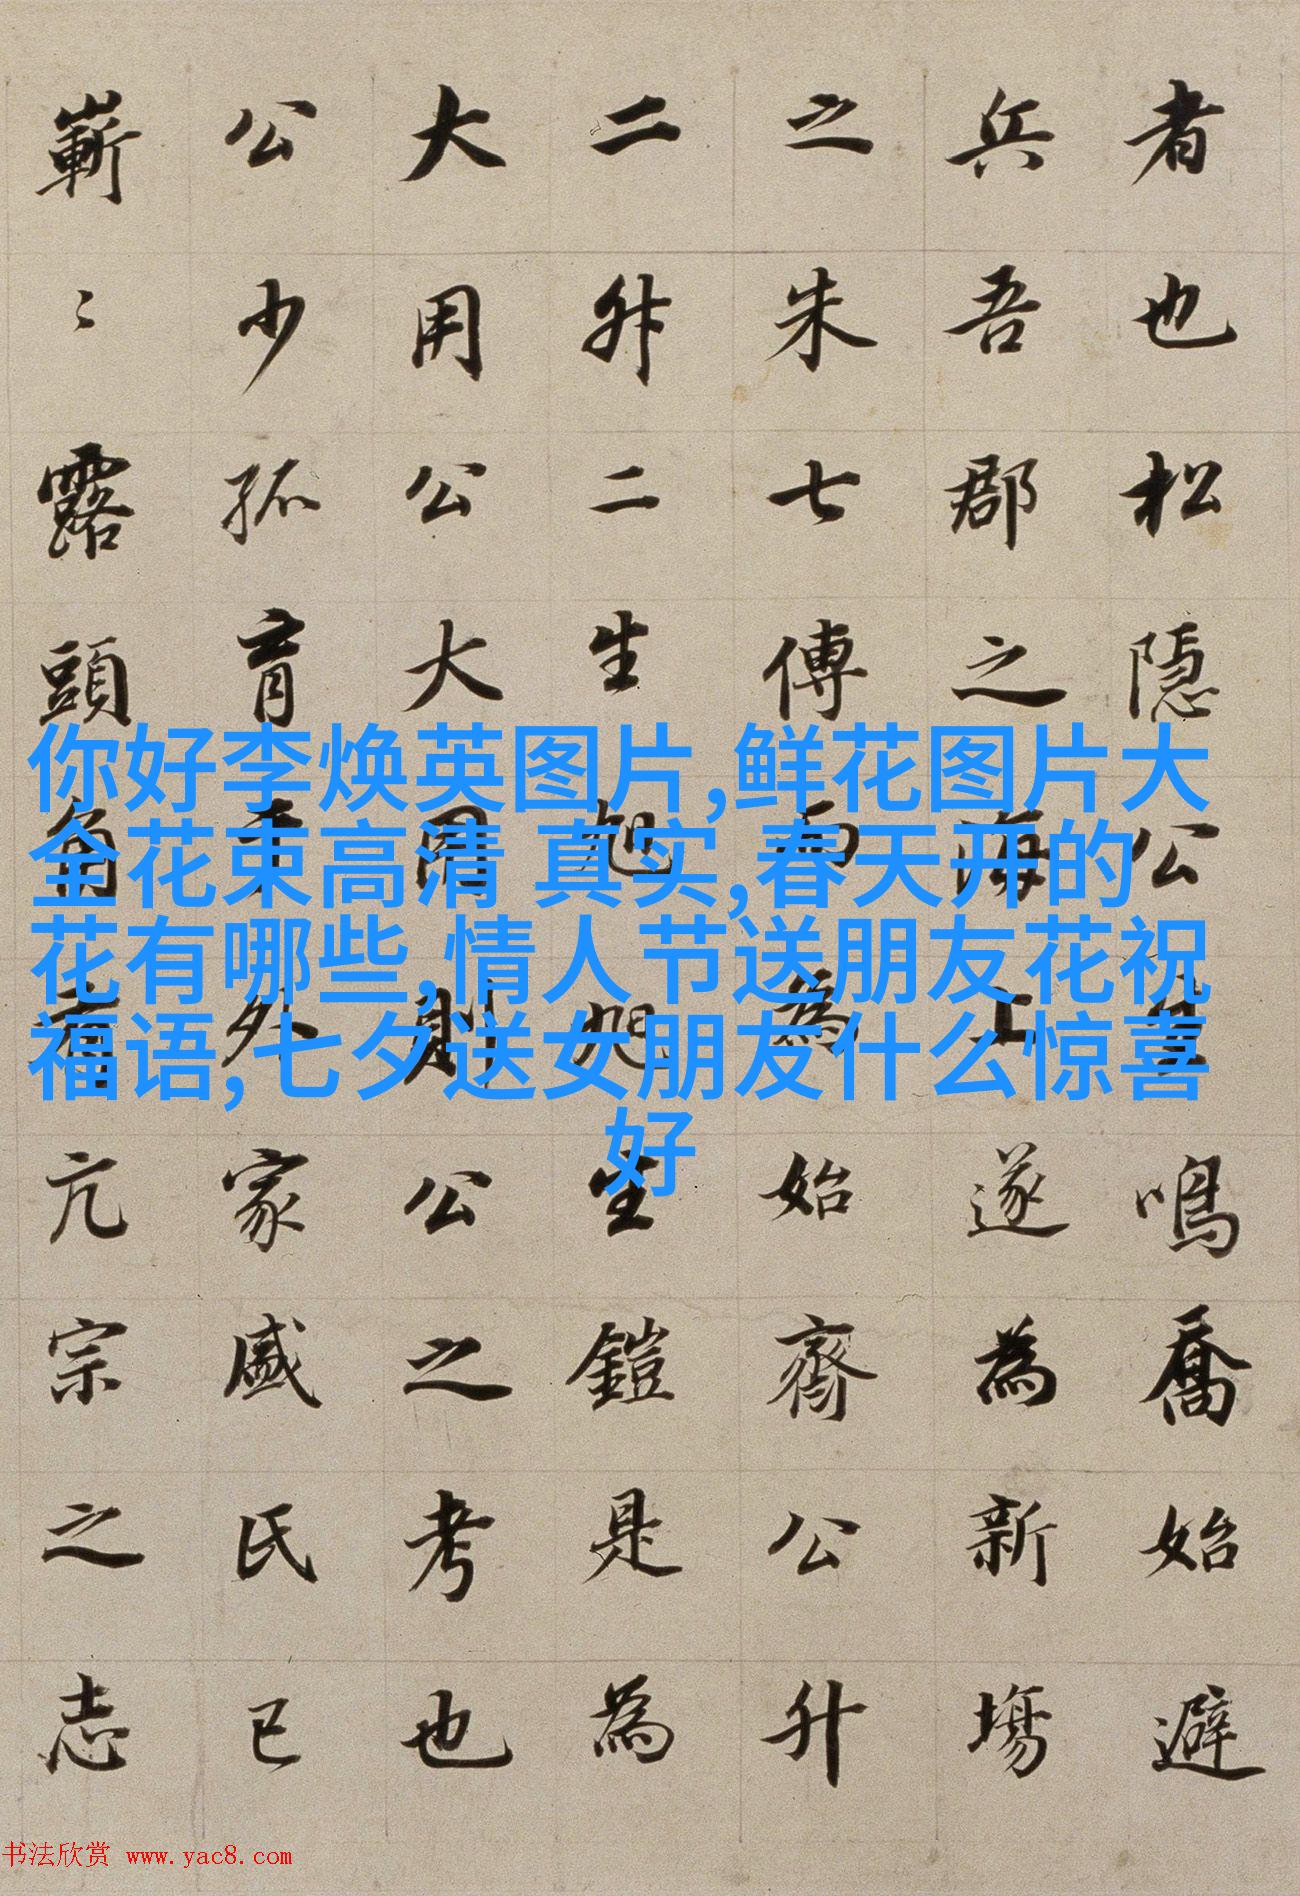 者也松隱公生鳴喬始避
兵吾郡之海上遂為新塲
之朱七傅而為始齊公升
二升二生旭旭生鎧是為
大用公大用則公之考也
公少孤育于外家戚氏已
嶄〻露頭角有亢宗之志
你好李焕英图片,鲜花图片大
全花束高清 真实,春天开的
花有哪些,情人节送朋友花祝
福语,七夕送女朋友什么惊喜
好
书法欣赏 www.yac8.com